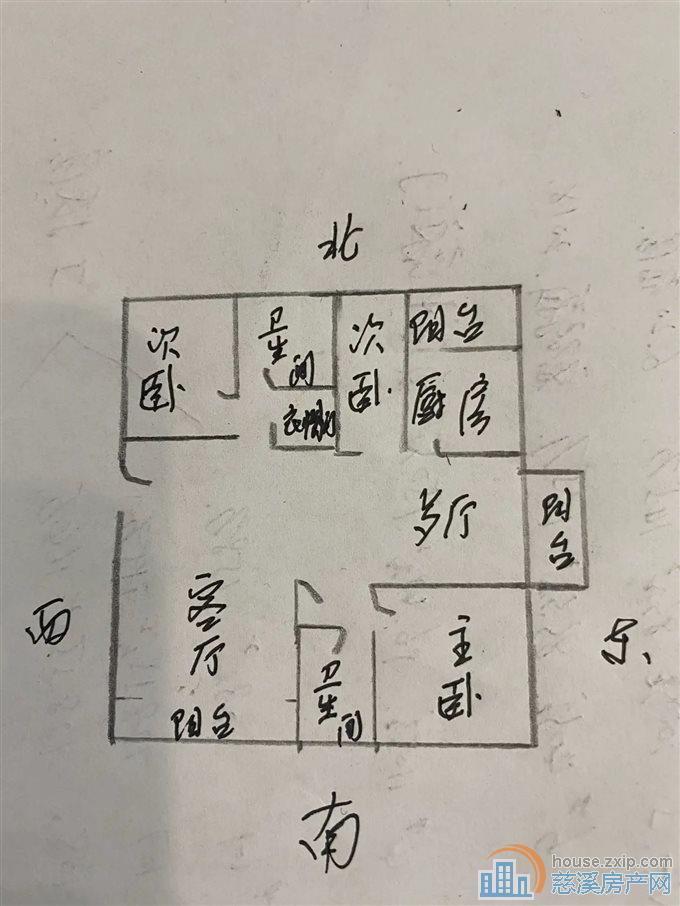 北
次卧
卫生间
次卧
阳台
衣帽间
厨房
歺厅
阳台
西
客厅
主卧
东
卫生间
阳台
南
house.zxip.com
慈溪房产网